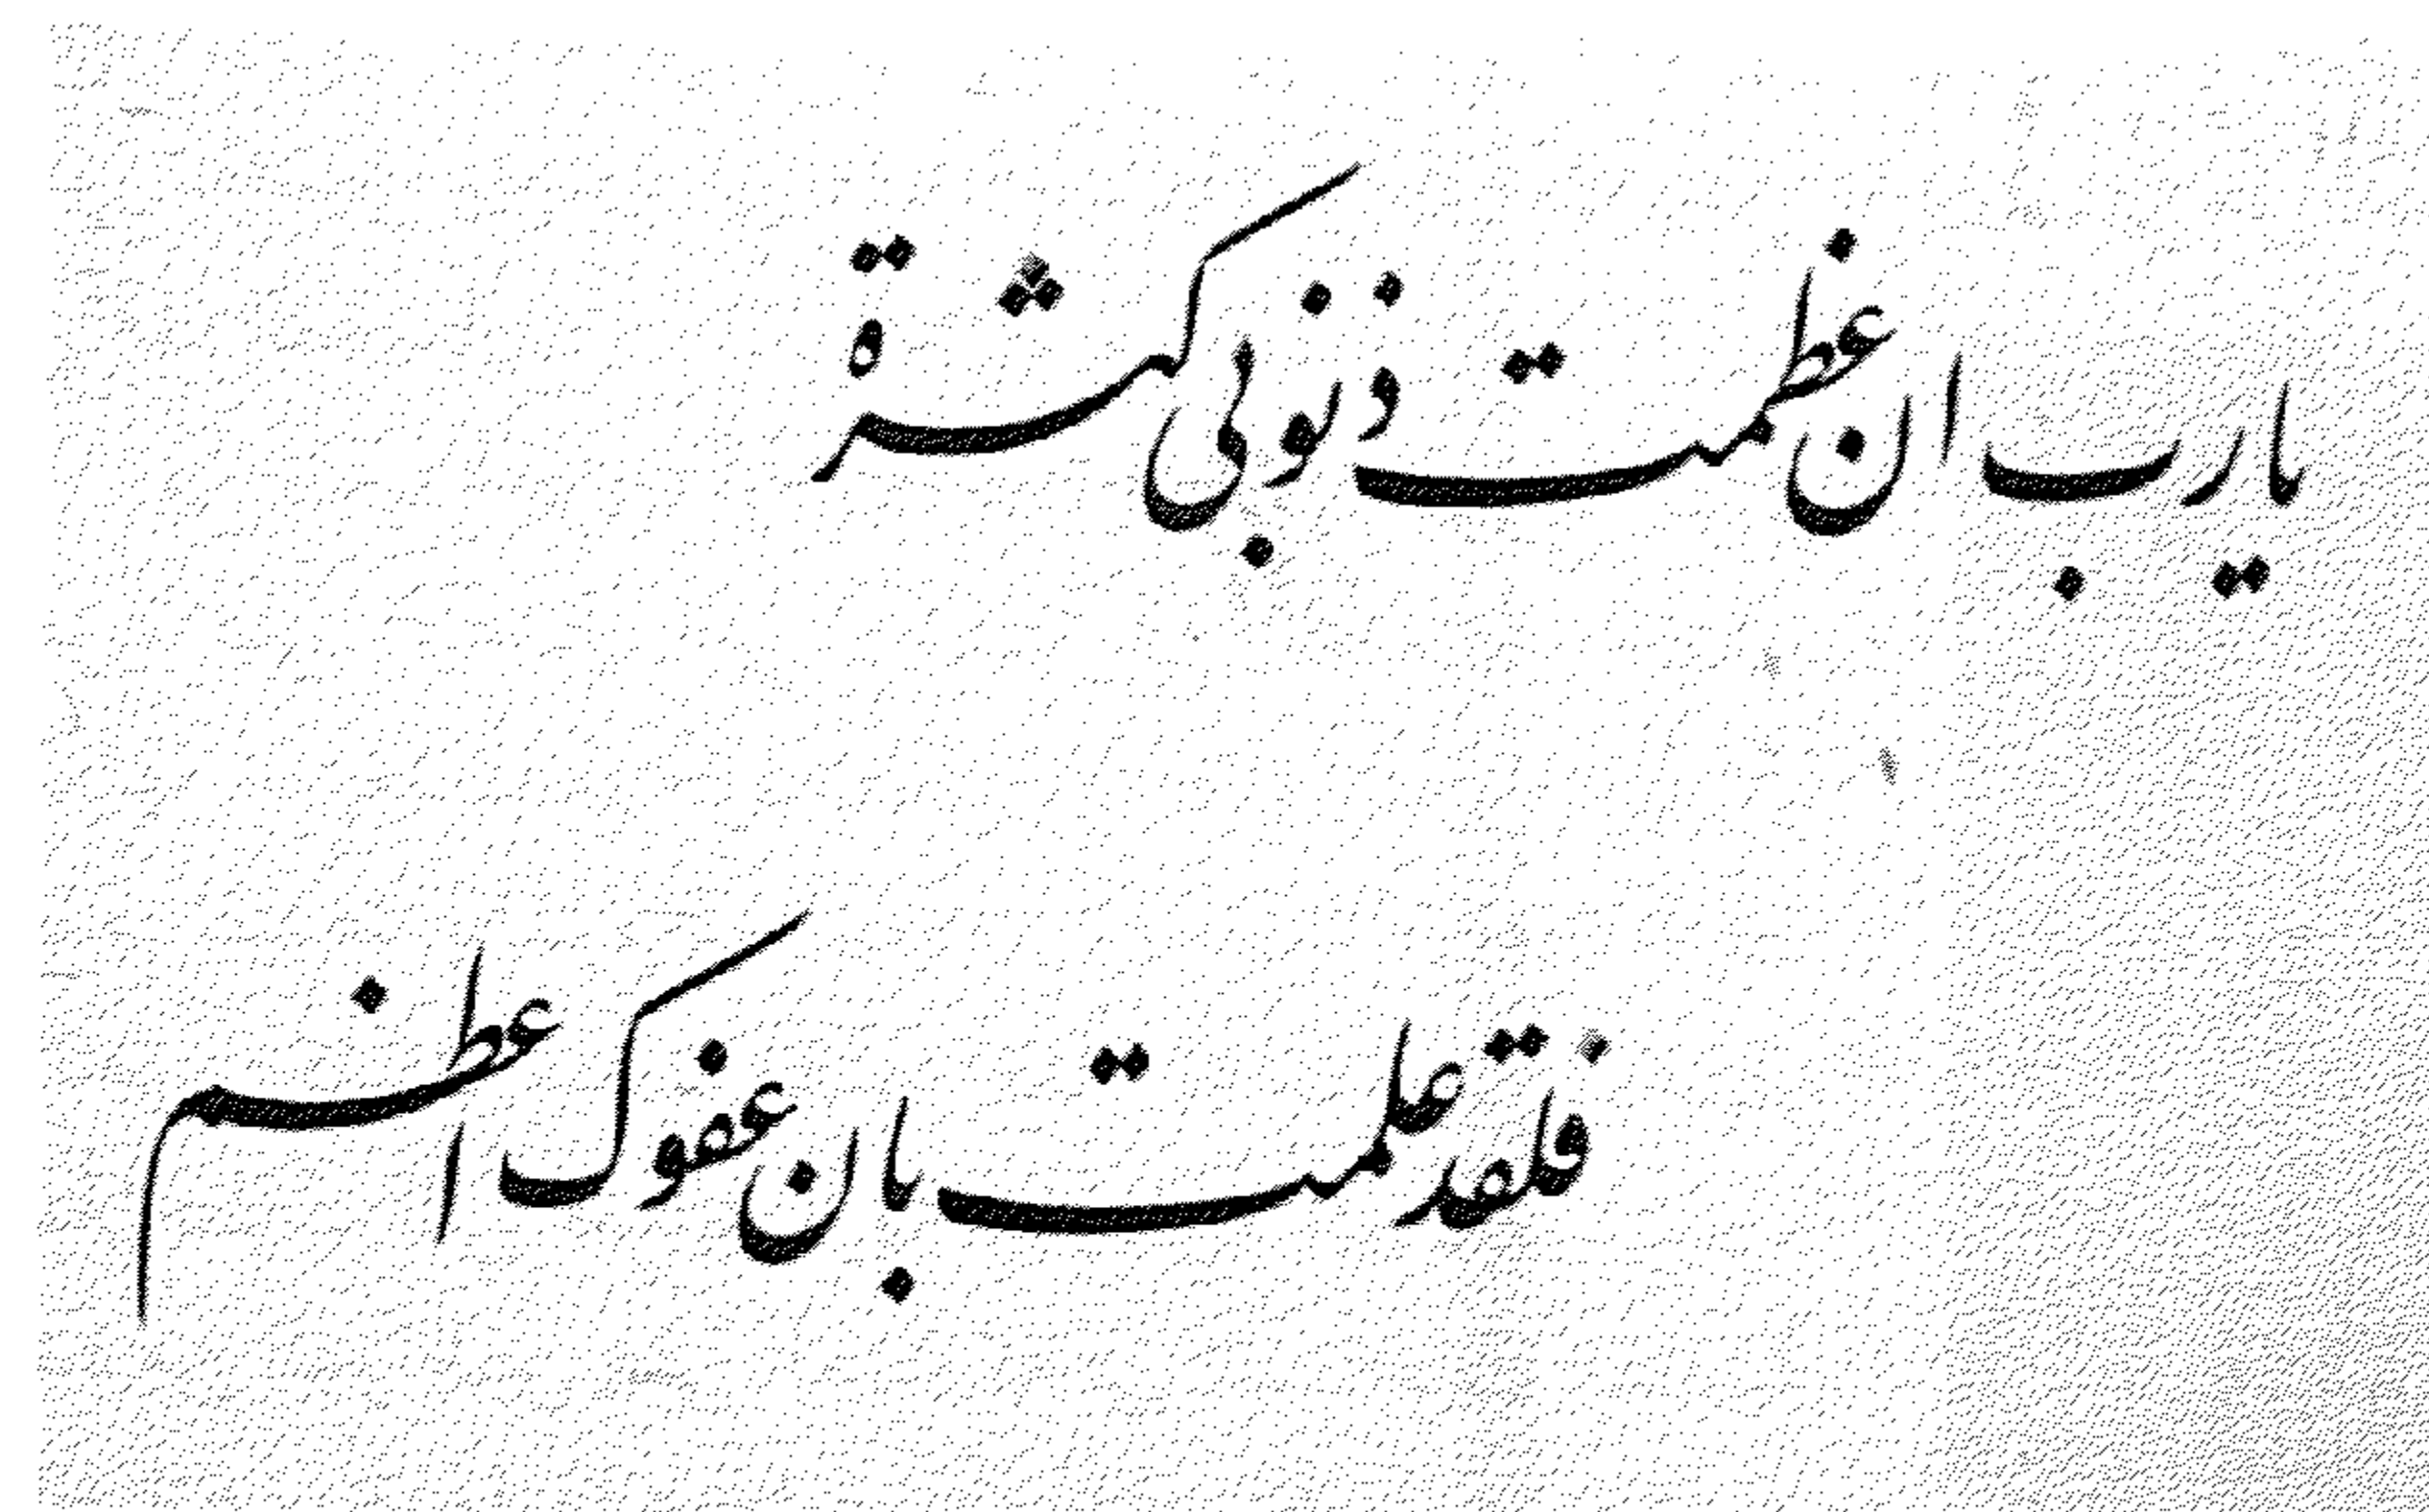 يا رب ان عظمت ذنوبى كثرة
فلقد علمت بان عفوك اعظم